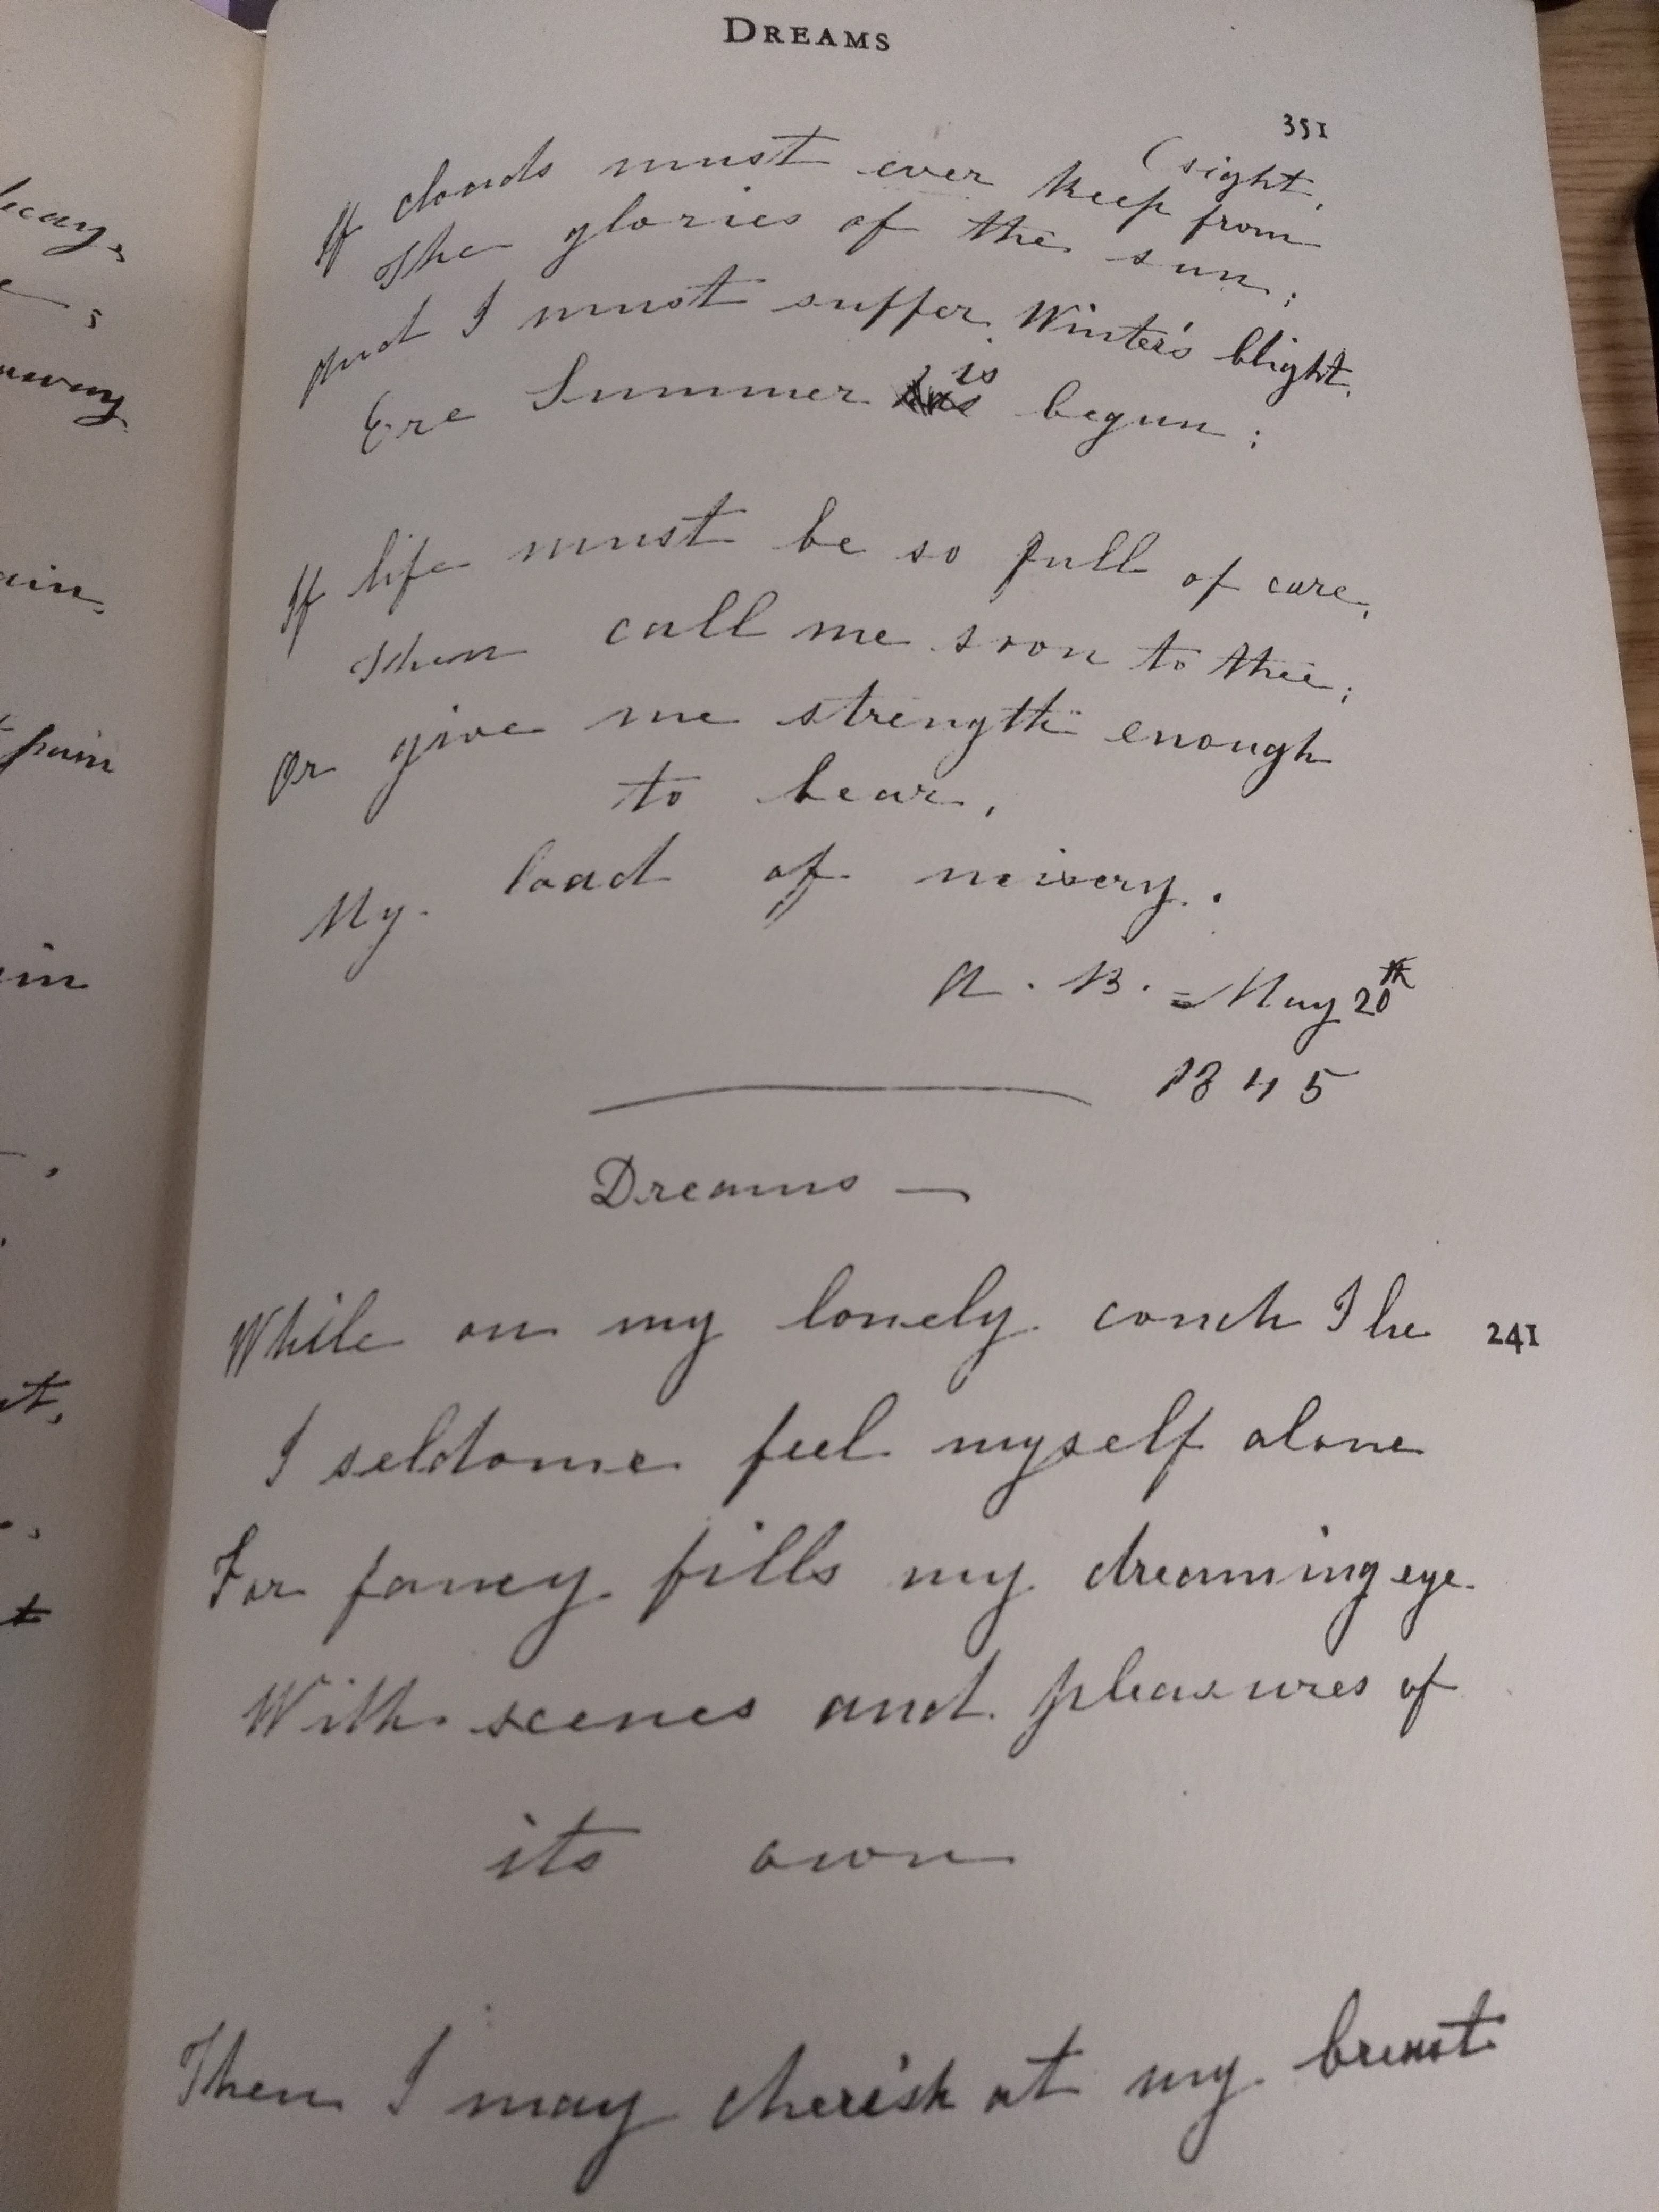 DREAMS
351
(sight,
If clouds must ever keep from
The glories of the sun;
And I must suffer Winter's blight,
is
Ere Summer begun;
If life must be so full of care,
Then call me soon to thee;
Or give me strength enough
to bear,
My load of misery.
A. B. = May 20th
1845
Dreams —
While on my lonely couch I lie 241
I seldome feel myself alone
For fancy fills my dreaming eye
With scenes and pleasures of
its own
Then I may cherish at my breast
ecay,
;
away
ain,
pain
in